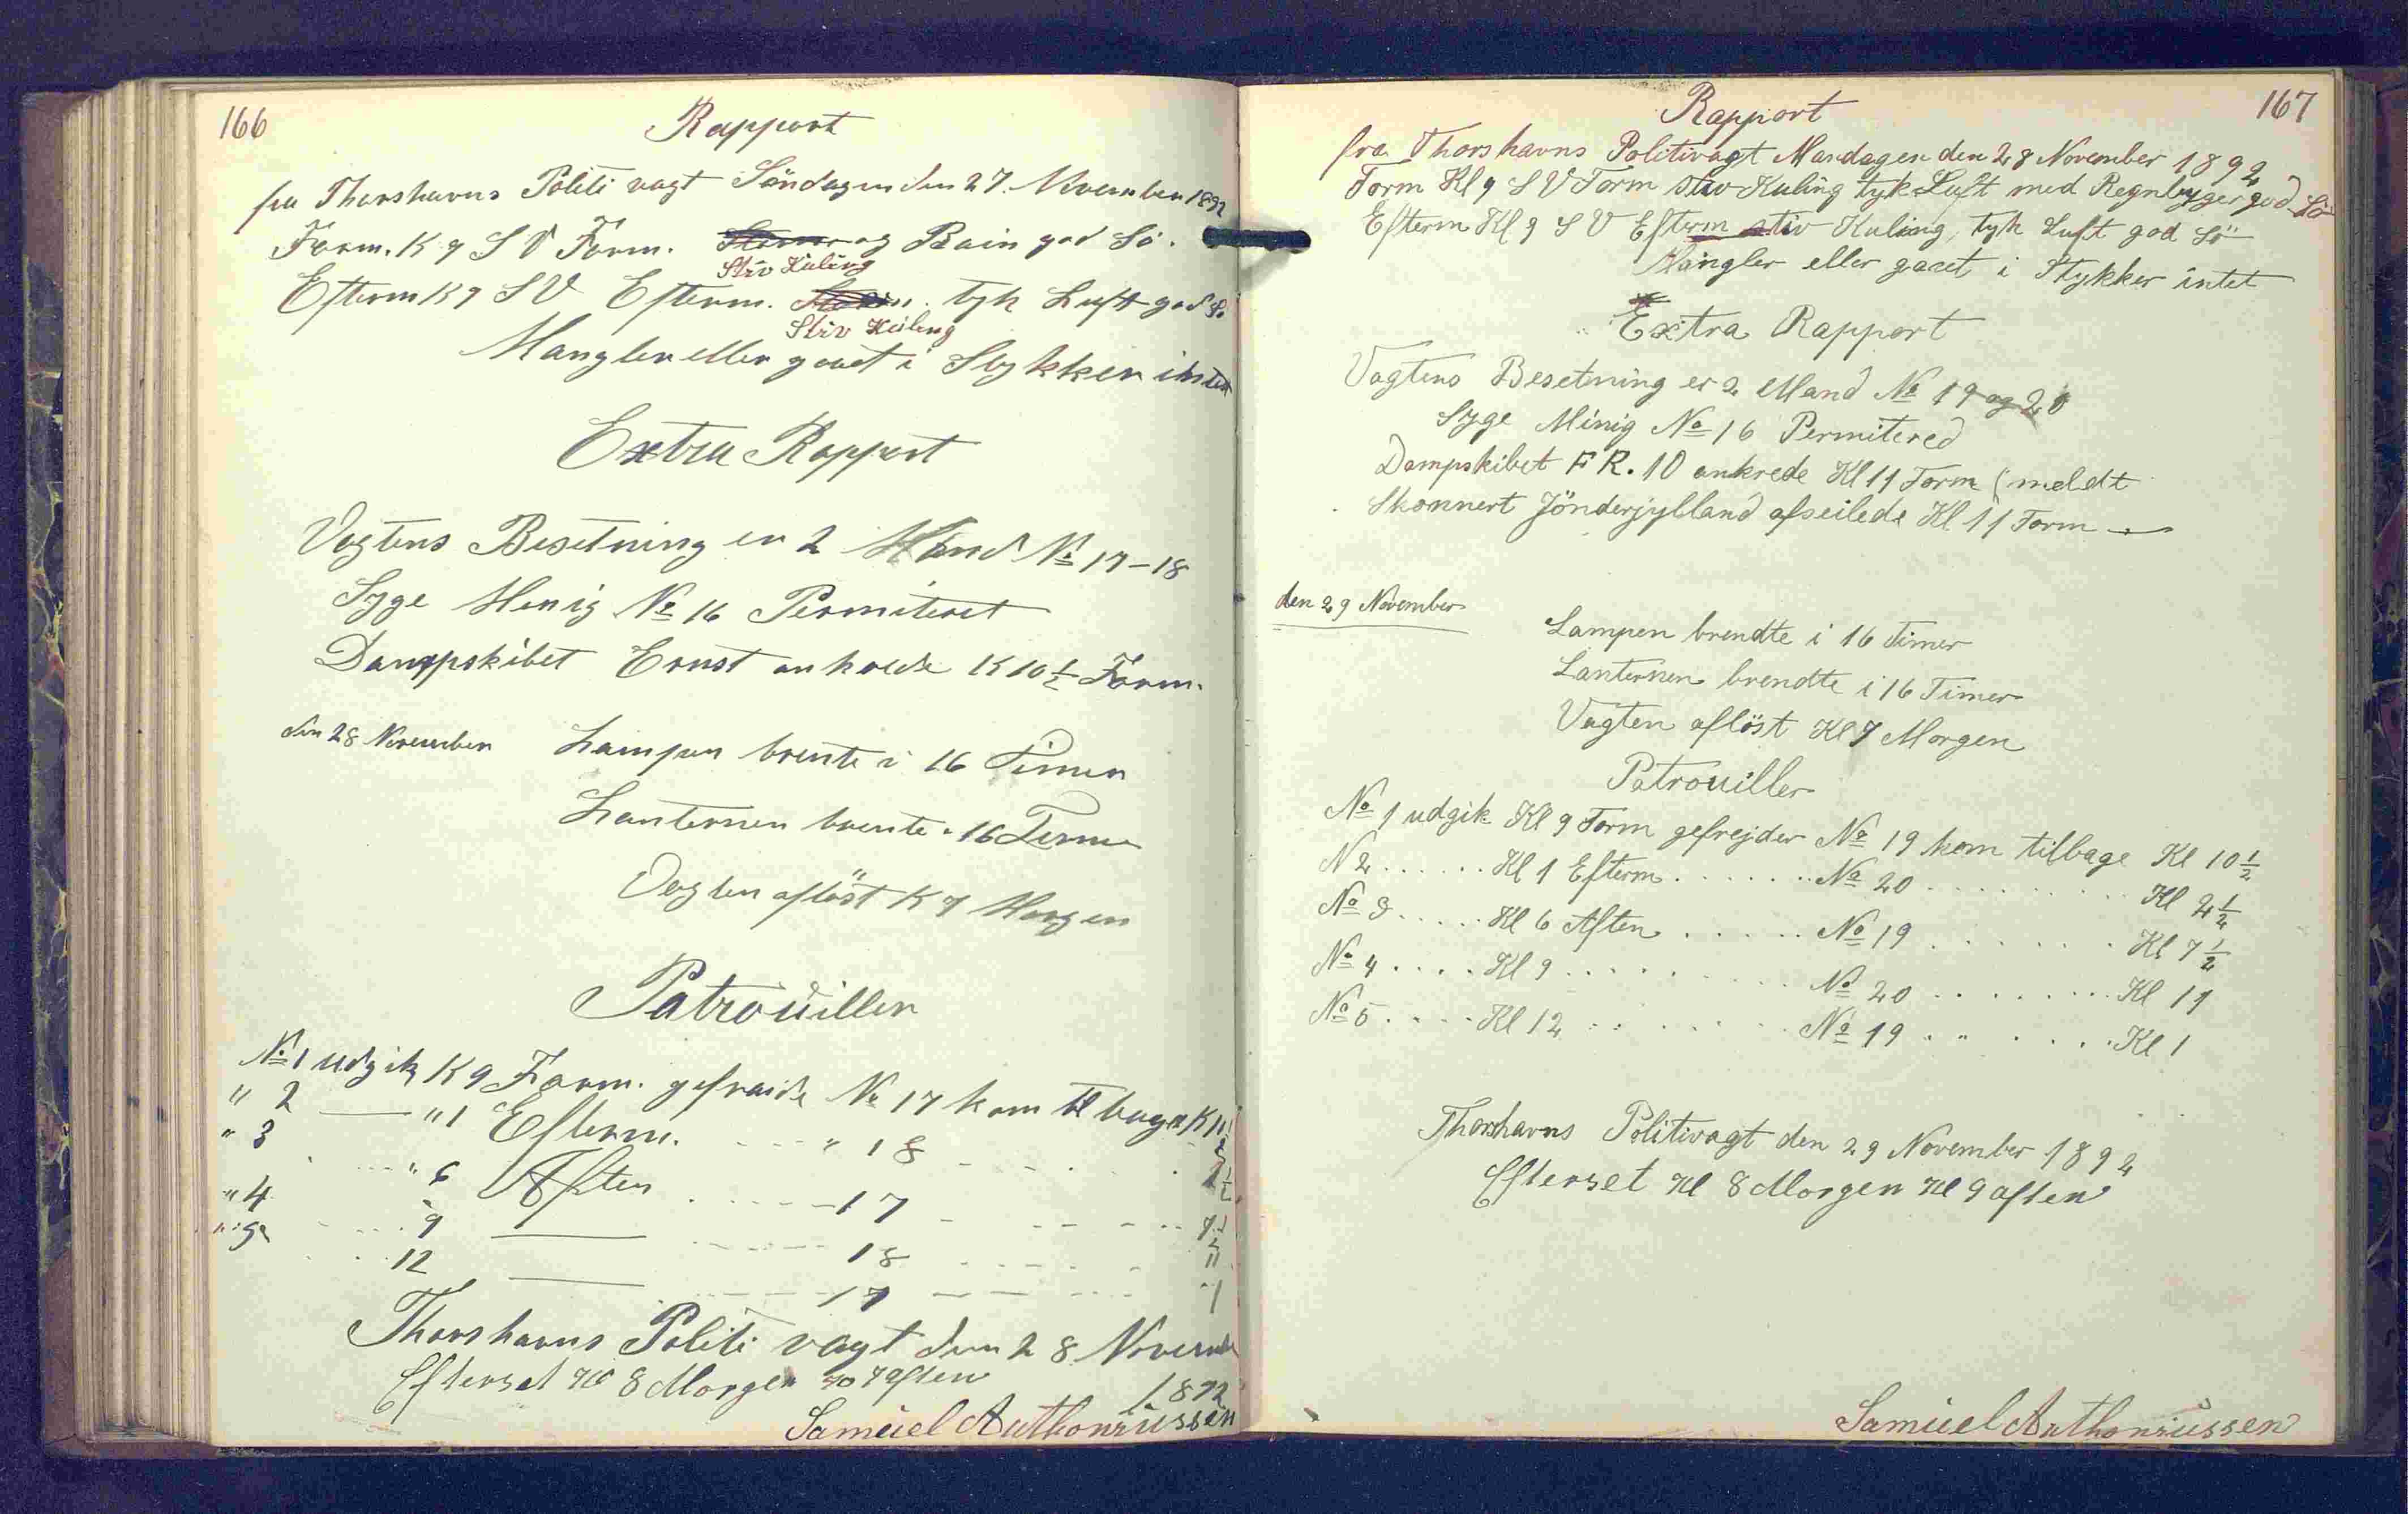 166
Rapport
fra Thorshavns Politi vagt Söndagen den 27. November 1892
Form. K 9 S V Form. Storm og Rain god Sö.
Stiv Kuling
Efterm K 9 S V Efterm. Storm. tyk Luft god Sö
Stiv Kuling
Mangler eller gaaet i Stykker intet
Extra Rapport
Vagtens Besetning er 2 Mand No 17-18
Syge Menig No 16 Permiteret
Dampskibet Ernst ankrede K 10 1/2 Form.
den 28 November Lampen brente i 16 Timer
Lanternen brente i 16 Timer
Vagten aflöst K 7 Morgen
Patrouiller
No 1 udgik K 9 Form. gefraide No 17 kom tilbage K
" 2 — " 1 Efterm. - - - " 18 - - -
" 3 - - - " 6 Aften - - - 17 - - -
" 4 - - - 9 — - - - 18 - - - 11
" 5 - - - 12 — - - - 17 - - - 1
Thorshavns Politi vagt den 28 November
1892
Efterset Kl 8 Morgen aften
Samuel Anthoniussen
167
Rapport
fra Thorshavns Politivagt Mandagen den 28 November 1892
Form Kl 9 S V Form Stiv Kuling tyk Luft med Regnbyger god Sö
Efterm Kl 9 S V Efterm stiv Kuling, tyk Luft god Sö
Mangler eller gaaet i Stykker intet
Extra Rapport
Vagtens Besetning er 2 Mand No 19 og 20
Syge Minig No 16 Permitered
Dampskibet F R. 10 ankrede Kl 11 Form (meldt
Skonnert Jönderjylland afseilede Kl 11 Form —
den 29 November
Lampen brendte i 16 Timer
Lanternen brendte i 16 Timer
Vagten aflöst Kl 7 Morgen
Patrouiller
No 1 udgik Kl 9 Form gefrejder No 19 kom tilbage Kl 10 1/2
N 2 ...... Kl 1 Efterm ...... No 20 ...... Kl 2 1/2
No 3 ..... Kl 6 Aften ..... No 19 ...... Kl 7 1/2
No 4 .... Kl 9 ...... No 20 ....... Kl 11
No 5 .... Kl 12 ...... No 19 ...... Kl 1
Thorshavns Politivagt den 29 November 1892
Efterset Kl 8 Morgen Kl 9 aften
Samuel Anthoniussen